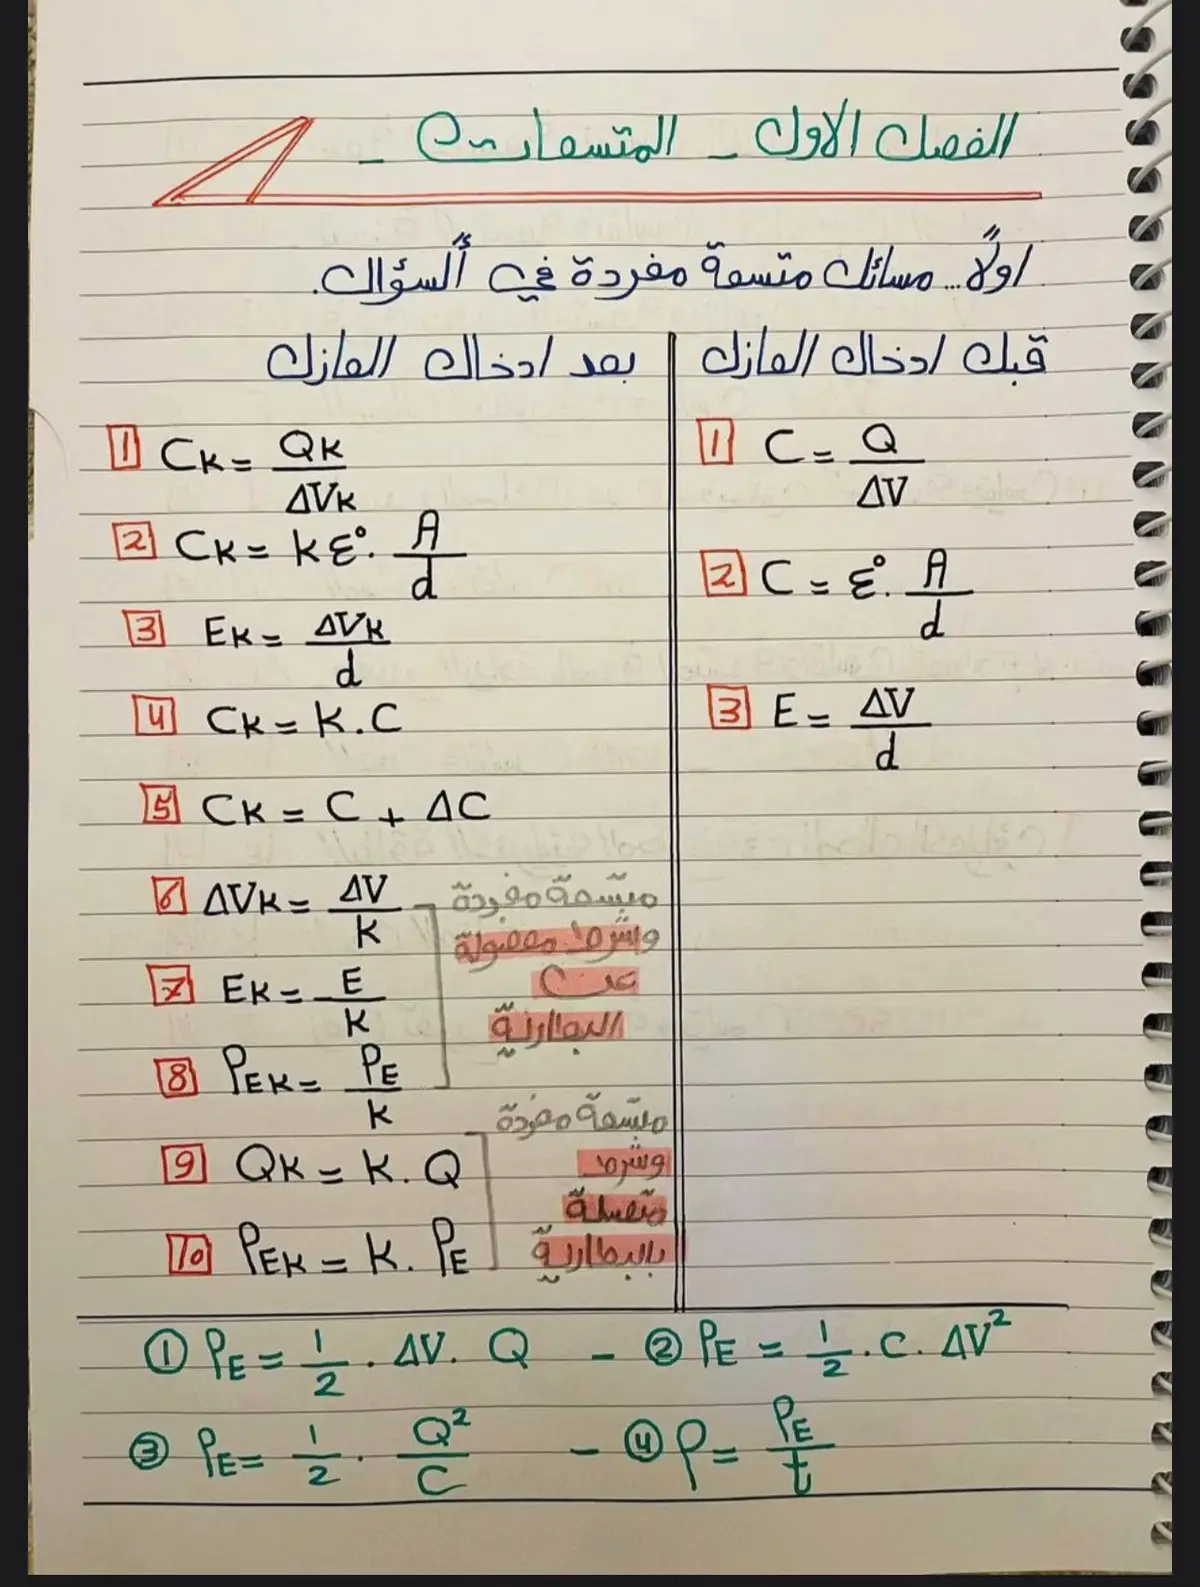 الفصل الاول - المتسعات -
اولاً... مسائل متسعة مفردة في السؤال.
قبل ادخال العازل
1 C = Q / ΔV
2 C = ε° . A / d
3 E = ΔV / d
بعد ادخال العازل
1 CK = QK / ΔVK
2 CK = K ε° . A / d
3 EK = ΔVK / d
4 CK = K . C
5 CK = C + ΔC
6 ΔVK = ΔV / K
7 EK = E / K
8 PEK = PE / K
متسعة مفردة
وشرط مفصولة
عن
البطارية
9 QK = K . Q
10 PEK = K . PE
متسعة مفردة
وشرط
متصلة
بالبطارية
① PE = 1/2 . ΔV . Q - ② PE = 1/2 . C . ΔV²
③ PE = 1/2 . Q² / C - ④ P = PE / t